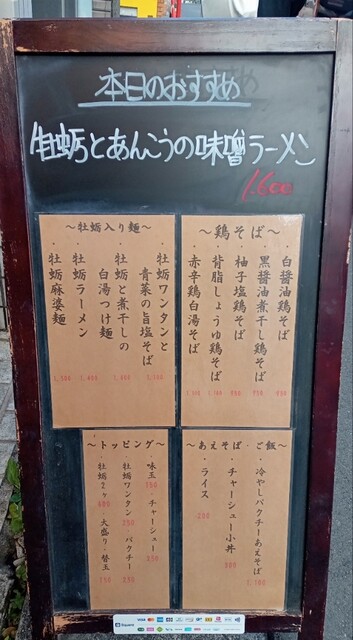 本日のおすすめ
牡蛎とあんこうの味噌ラーメン
1.600
～牡蛎入り麺～
・牡蛎ワンタンと
青菜の旨塩そば
・牡蛎と煮干しの
白湯つけ麺
・牡蛎ラーメン
・牡蛎麻婆麺
～鶏そば～
・白醤油鶏そば
・黒醤油煮干し鶏そば
・柚子塩鶏そば
・背脂しょうゆ鶏そば
・赤辛鶏白湯そば
～トッピング～
・味玉
・チャーシュー
・牡蛎ワンタン
・パクチー
・牡蛎2ヶ
・大盛り・替玉
～あえそば・ご飯～
・冷やしパクチーあえそば
・チャーシュー小丼
・ライス
200
Square